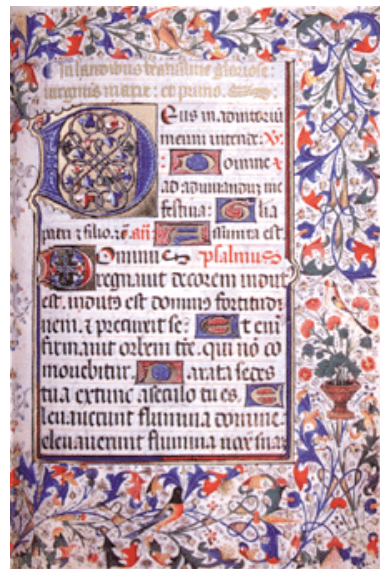 In laudibus beatissime gloriose
uirginis marie: et primo.
Deus in adiutoriū
meum intende: ℟.
Domine
ad adiuuanduz me
festina: Glia
patri ⁊ filio. ⁊c̄. an̄: Assumta est.
Dominus psalmus
regnauit decorem indut
est. indutꝰ est dominꝰ fortitudi
nem. ⁊ precinxit se: Et eni
firmauit orbem tr̄e. qui nō co
mouebitur. Parata sedes
tua extunc aseculo tu es. E
leuauerunt flumina domine
eleuauerunt flumina uocē suaz